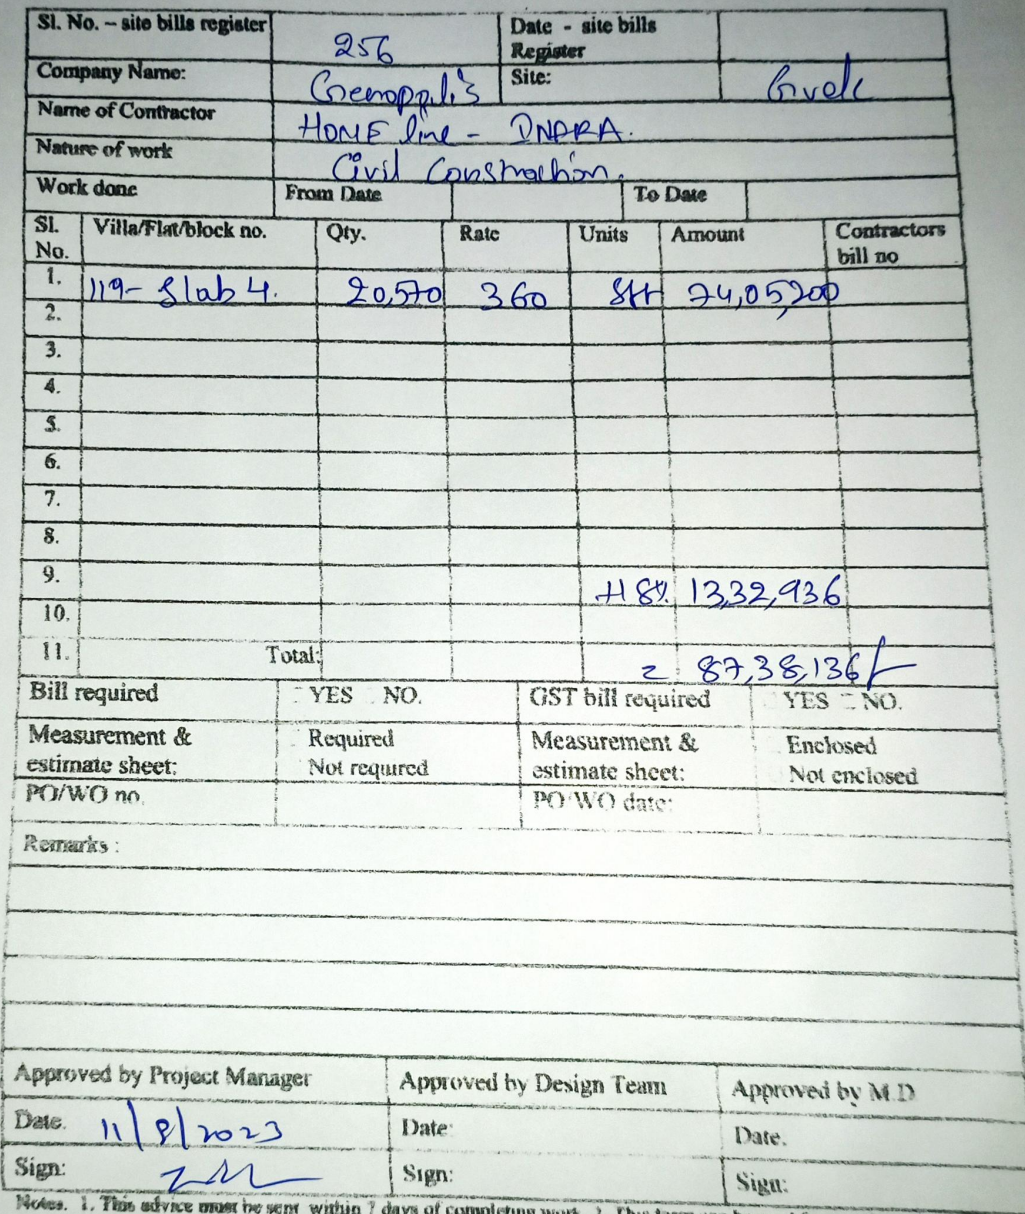 Sl. No. – site bills register 256 Date - site bills Register
Company Name: Greenopplis Site:
Name of Contractor HOME line - INDRA.
Nature of work Civil Construction.
Work done From Date To Date
Sl. No. Villa/Flat/block no. Qty. Rate Units Amount Contractors bill no
1. 119- Slab 4. 20,570 360 Sft 74,05,200
2.
3.
4.
5.
6.
7.
8.
9. +18% 13,32,936
10.
11. Total: = 87,38,136/-
Bill required YES NO. GST bill required YES NO.
Measurement & estimate sheet: Required Not required Measurement & estimate sheet: Enclosed Not enclosed
PO/WO no. PO/WO date:
Remarks :
Approved by Project Manager Approved by Design Team Approved by M.D
Date. 11/8/2023 Date: Date.
Sign: Sign: Sign:
Notes. 1. This advice must be sent within 7 days of completing work.